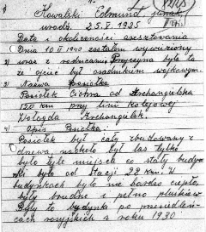 Kowalski Edmund
urodz. 25.X 1925
Data i okoliczności aresztowania
Dnia 10 II 1940 zostałem wywieziony
wraz z rodzicami Przyczyna było to
że ojciec był osadnikiem wojskowym.
Nazwa posiołka
Posiołek Ochma od Archangielska
150 km przy linii kolejowej
Wołogda Archangielsk.
Opis Posiołka
Posiołek był cały zbudowany z
drzewa, naokoło był las tylko
było tyle miejsca co stały budyn
ki było od stacji 28 km. W
budynkach było nie bardzo ciepło
były brudne i pełno pluskiew
Były to budynki po
cach rosyjskich z roku 1930